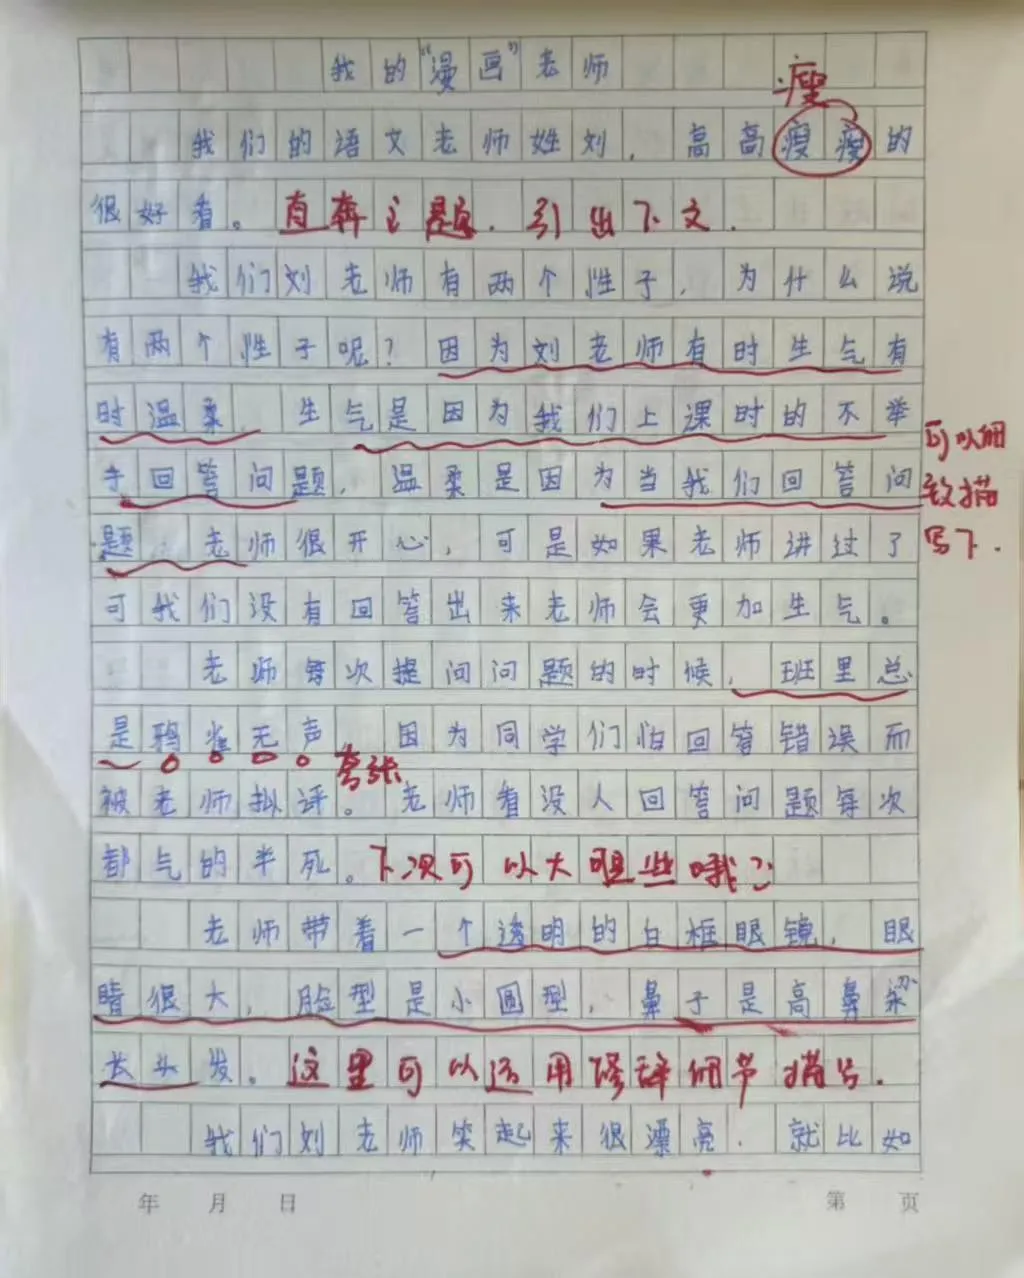 我的“漫画”老师
瘦
我们的语文老师姓刘，高高瘦瘦的
很好看。直奔主题，引出下文.
我们刘老师有两个性子，为什么说
有两个性子呢？因为刘老师有时生气有
时温柔，生气是因为我们上课时的不举
手回答问题，温柔是因为当我们回答问
题，老师很开心，可是如果老师讲过了
可以细
致描
写下.
可我们没有回答出来老师会更加生气。
老师每次提问问题的时候，班里总
是鸦雀无声，因为同学们怕回答错误而
夸张
被老师批评。老师看没人回答问题每次
都气的半死。下次可以大胆些哦
老师带着一个透明的白框眼镜，眼
睛很大，脸型是小圆型，鼻子是高鼻梁
长头发。这里可以运用修辞细节描写.
我们刘老师笑起来很漂亮，就比如
年 月 日 第 页